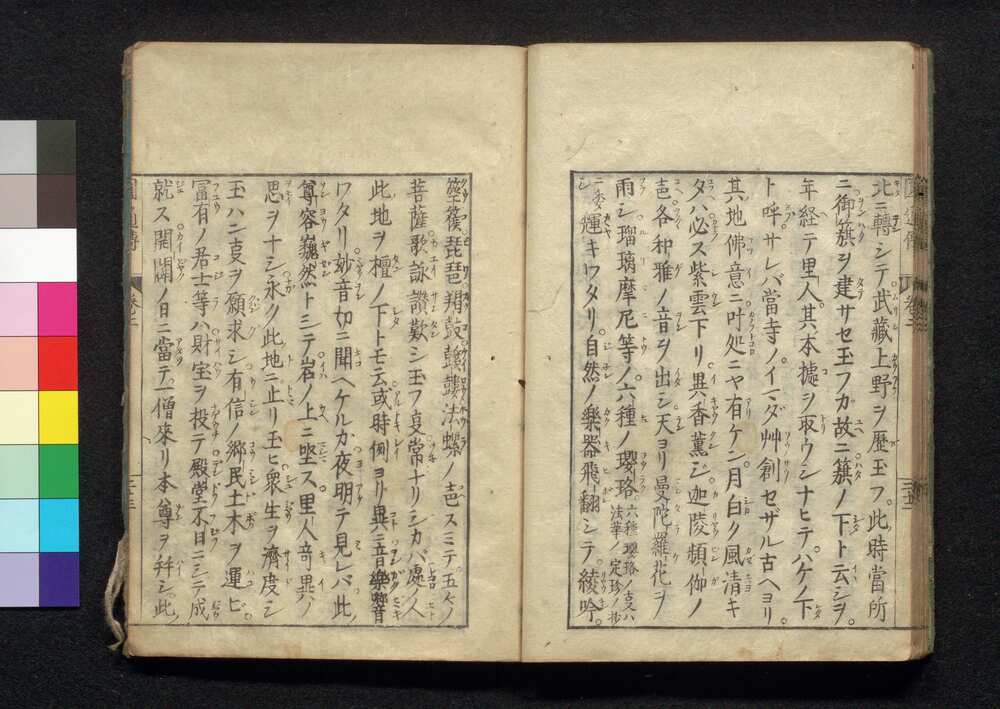 北ニ轉シテ武藏上野ヲ歴玉フ。此時當所
ニ御籏ヲ建サセ玉フガ故ニ籏ノ下ト云シヲ。
年経テ里人其本據ヲ取ウシナヒテ。ハゲノ下
ト呼。サレバ當寺ノイマダ艸創セザル古ヘヨリ。
其地佛意ニ叶処ニヤ有ケン。月白ク風清キ
夕ハ必ス紫雲下リ。異香薫シ。迦陵頻伽ノ
声各種雅ノ音ヲ出シ天ヨリ曼陀羅花ヲ
雨シ瑠璃摩尼等ノ六種ノ瓔珞六種瓔珞ノ支ハ法華ノ定珍ノ抄
ニ委シ輝キワタリ。自然ノ樂器飛翻シテ。綾吟。
箜篌琵琶。羯鼓鼓法螺ノ声スミテ。五々ノ
菩薩歌詠讃歎シ玉フ亨常ナリシカバ處ノ人
此地ヲ檀ノ下トモ云。或時例ヨリ異ニ音樂響
ワタリ妙音如ニ聞ヘケルカ夜明テ見レバ此
尊容巍然トシテ岩ノ上ニ坐ス。里人竒異ノ
思ヲナシ永ク此地ニ止リ玉ヒ衆生ヲ濟度シ
玉ハン亨ヲ願求シ有信ノ郷民土木ヲ運ビ。
冨有ノ居士等ハ財宝ヲ投テ殿堂不日ニシテ成
就ス開闢ノ日ニ當テ一僧來リ本尊ヲ拜シ此